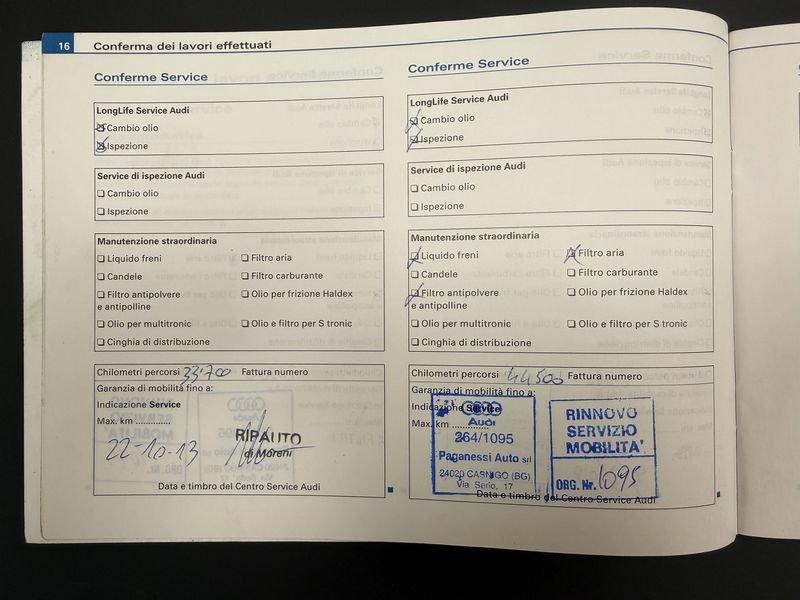 16 Conferma dei lavori effettuati
Conferme Service
LongLife Service Audi
Cambio olio
Ispezione
Service di ispezione Audi
Cambio olio
Ispezione
Manutenzione straordinaria
Liquido freni Filtro aria
Candele Filtro carburante
Filtro antipolvere Olio per frizione Haldex
e antipolline
Olio per multitronic Olio e filtro per S tronic
Cinghia di distribuzione
Chilometri percorsi 33'700 Fattura numero
Garanzia di mobilità fino a:
Indicazione Service
Max. km ............
22-10-13
RIPAUTO
di Moreni
Data e timbro del Centro Service Audi
Conferme Service
LongLife Service Audi
Cambio olio
Ispezione
Service di ispezione Audi
Cambio olio
Ispezione
Manutenzione straordinaria
Liquido freni Filtro aria
Candele Filtro carburante
Filtro antipolvere Olio per frizione Haldex
e antipolline
Olio per multitronic Olio e filtro per S tronic
Cinghia di distribuzione
Chilometri percorsi 44500 Fattura numero
Garanzia di mobilità fino a:
Indicazione Service
Max. km
Audi
264/1095
Paganessi Auto srl
24020 CASNIGO (BG)
Via Serio, 17
RINNOVO
SERVIZIO
MOBILITA'
ORG. Nr. 1095
Data e timbro del Centro Service Audi